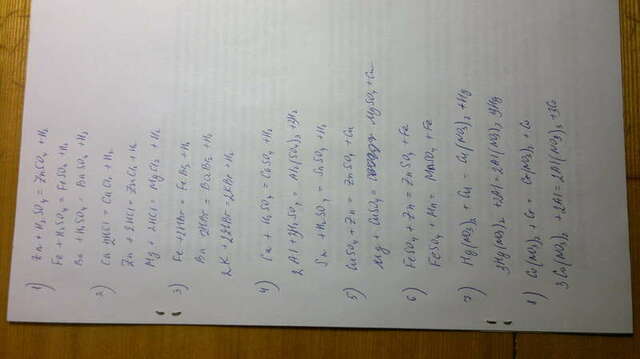 1) Zn + H₂SO₄ = ZnSO₄ + H₂
Fe + H₂SO₄ = FeSO₄ + H₂
Ba + H₂SO₄ = BaSO₄ + H₂
2) Ca + 2HCl = CaCl₂ + H₂
Zn + 2HCl = ZnCl₂ + H₂
Mg + 2HCl = MgCl₂ + H₂
3) Fe + 2HBr = FeBr₂ + H₂
Ba + 2HBr = BaBr₂ + H₂
2K + 2HBr = 2KBr + H₂
4) Ca + H₂SO₄ = CaSO₄ + H₂
2Al + 3H₂SO₄ = Al₂(SO₄)₃ + 3H₂
Sn + H₂SO₄ = SnSO₄ + H₂
5) CuSO₄ + Zn = ZnSO₄ + Cu
Mg + CuSO₄ = MgSO₄ + Cu
6) FeSO₄ + Zn = ZnSO₄ + Fe
FeSO₄ + Mn = MnSO₄ + Fe
7) Hg(NO₃)₂ + Cu = Cu(NO₃)₂ + Hg
3Hg(NO₃)₂ + 2Al = 2Al(NO₃)₃
8)
+ 2Al = 2Al(NO₃)₃